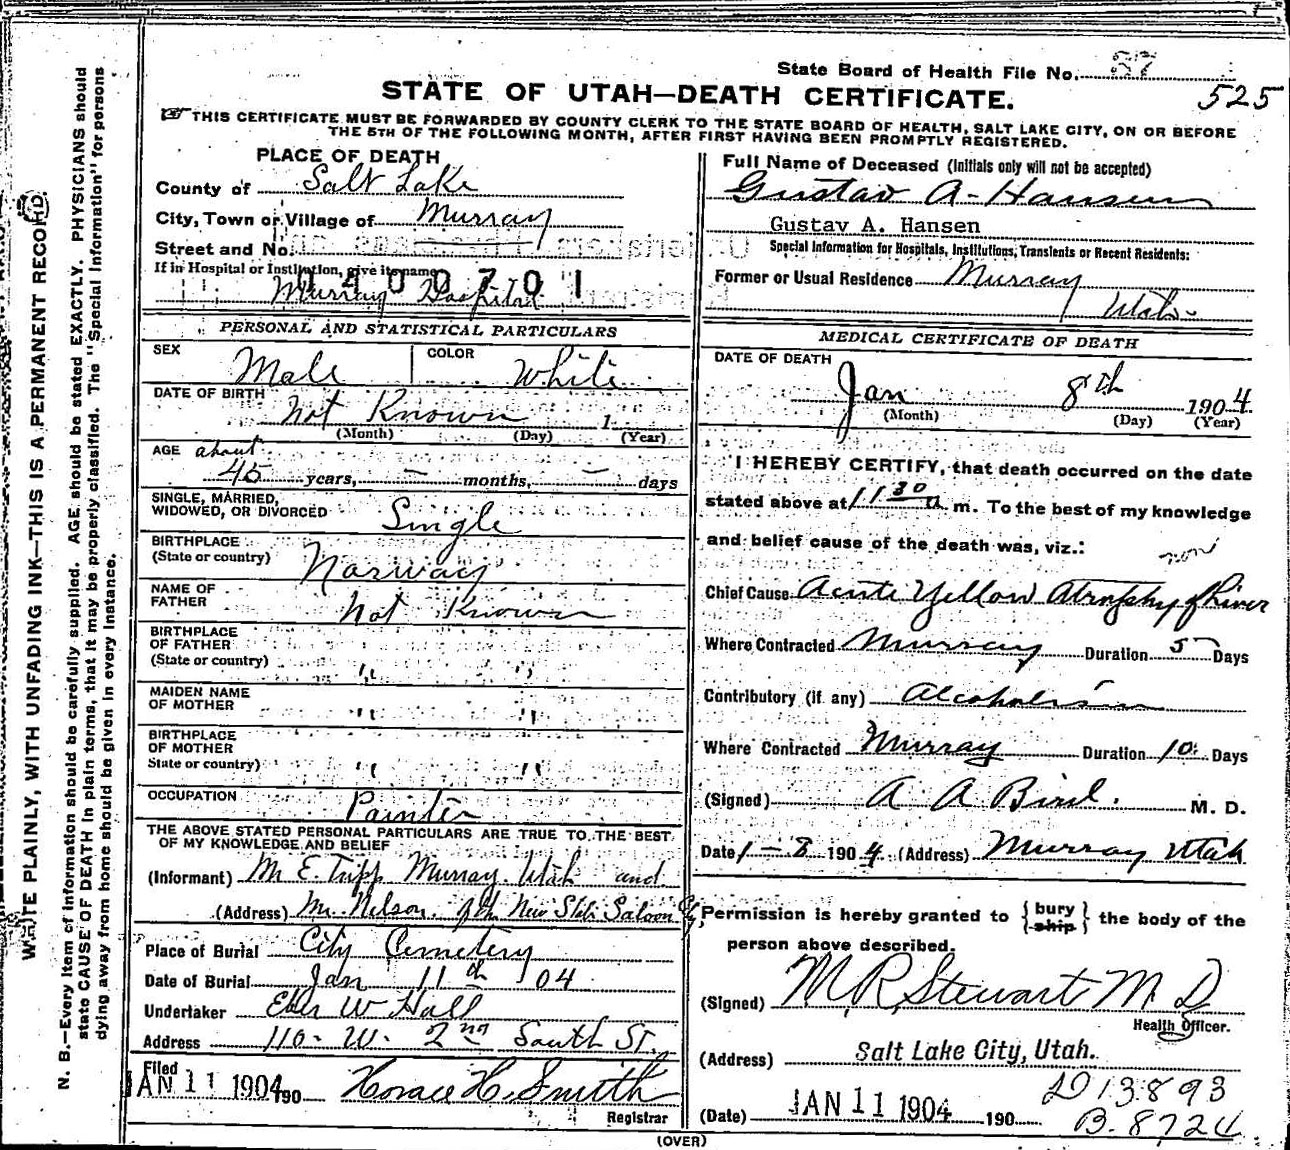 State Board of Health File No. 87
525
STATE OF UTAH—DEATH CERTIFICATE.
THIS CERTIFICATE MUST BE FORWARDED BY COUNTY CLERK TO THE STATE BOARD OF HEALTH, SALT LAKE CITY, ON OR BEFORE
THE 5TH OF THE FOLLOWING MONTH, AFTER FIRST HAVING BEEN PROMPTLY REGISTERED.
WRITE PLAINLY, WITH UNFADING INK—THIS IS A PERMANENT RECORD.
N. B.—Every item of information should be carefully supplied. AGE should be stated EXACTLY. PHYSICIANS should
state CAUSE OF DEATH in plain terms, that it may be properly classified. The "Special Information" for persons
dying away from home should be given in every instance.
PLACE OF DEATH
County of Salt Lake
City, Town or Village of Murray
Street and No.
If in Hospital or Institution, give its name
0400701
Murray Hospital
PERSONAL AND STATISTICAL PARTICULARS
SEX Male COLOR White
DATE OF BIRTH Not Known 1
(Month) (Day) (Year)
AGE about
45 years, — months, — days
SINGLE, MARRIED,
WIDOWED, OR DIVORCED Single
BIRTHPLACE
(State or country) Norway
NAME OF
FATHER Not Known
BIRTHPLACE
OF FATHER
(State or country) " "
MAIDEN NAME
OF MOTHER " "
BIRTHPLACE
OF MOTHER
State or country) " "
OCCUPATION Painter
THE ABOVE STATED PERSONAL PARTICULARS ARE TRUE TO THE BEST
OF MY KNOWLEDGE AND BELIEF
(Informant) M E. Tripp Murray. Utah and
(Address) Mr Nelson. New State Saloon City
Place of Burial City Cemetery
Date of Burial Jan 11th 04
Undertaker Eber W Hall
Address 110- W- 2nd South St.
Filed
JAN 11 1904 190 Horace H. Smith
Registrar
Full Name of Deceased (Initials only will not be accepted)
Gustav A- Hansen
Gustav A. Hansen
Special Information for Hospitals, Institutions, Transients or Recent Residents:
Former or Usual Residence Murray
Utah-
MEDICAL CERTIFICATE OF DEATH
DATE OF DEATH
Jan 8th 1904
(Month) (Day) (Year)
I HEREBY CERTIFY, that death occurred on the date
stated above at 11 30 a m. To the best of my knowledge
and belief cause of the death was, viz.:
non
Chief Cause Acute Yellow Atrophy of Liver
Where Contracted Murray Duration 5 Days
Contributory (if any) Alcoholism
Where Contracted Murray Duration 10 Days
(Signed) A A Bird. M. D.
Date 1-8 1904. (Address) Murray Utah
Permission is hereby granted to {bury ship} the body of the
person above described.
(Signed) M. R. Stewart M D
Health Officer.
(Address) Salt Lake City, Utah.
D13893
(Date) JAN 11 1904 190
B. 8724
(OVER)